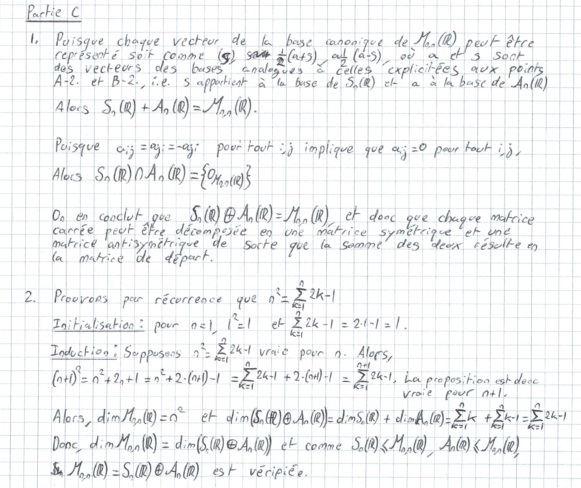 Partie C
1. Puisque chaque vecteur de la base canonique de Mn,n(ℝ) peut être
représenté soit comme (s) ½(a+s), ou ½(a-s), où a et s sont
des vecteurs des bases analogues à celles explicitées aux points
A-2. et B-2., i.e. s appartient à la base de Sn(ℝ) et a à la base de An(ℝ)
Alors Sn(ℝ) + An(ℝ) = Mn,n(ℝ).
Puisque aij = aji = -aji pour tout i,j implique que aij = 0 pour tout i,j,
Alors Sn(ℝ) ∩ An(ℝ) = {0Mn,n(ℝ)}
On en conclut que Sn(ℝ) ⊕ An(ℝ) = Mn,n(ℝ), et donc que chaque matrice
carrée peut être décomposée en une matrice symétrique et une
matrice antisymétrique de sorte que la somme des deux résulte en
la matrice de départ.
2. Prouvons par récurrence que n² = ∑_{k=1}^{n} 2k-1
Initialisation : pour n=1, 1²=1 et ∑_{k=1}^{n} 2k-1 = 2·1-1 = 1.
Induction : Supposons n² = ∑_{k=1}^{n} 2k-1 vraie pour n. Alors,
(n+1)² = n²+2n+1 = n²+2·(n+1)-1 = ∑_{k=1}^{n} 2k-1 + 2·(n+1)-1 = ∑_{k=1}^{n+1} 2k-1. La proposition est donc
vraie pour n+1.
Alors, dim Mn,n(ℝ) = n² et dim(Sn(ℝ) ⊕ An(ℝ)) = dim Sn(ℝ) + dim An(ℝ) = ∑_{k=1}^{n} k + ∑_{k=1}^{n} k-1 = ∑_{k=1}^{n} 2k-1
Donc, dim Mn,n(ℝ) = dim(Sn(ℝ) ⊕ An(ℝ)) et comme Sn(ℝ) ⩽ Mn,n(ℝ), An(ℝ) ⩽ Mn,n(ℝ),
Mn,n(ℝ) = Sn(ℝ) ⊕ An(ℝ) est vérifiée.